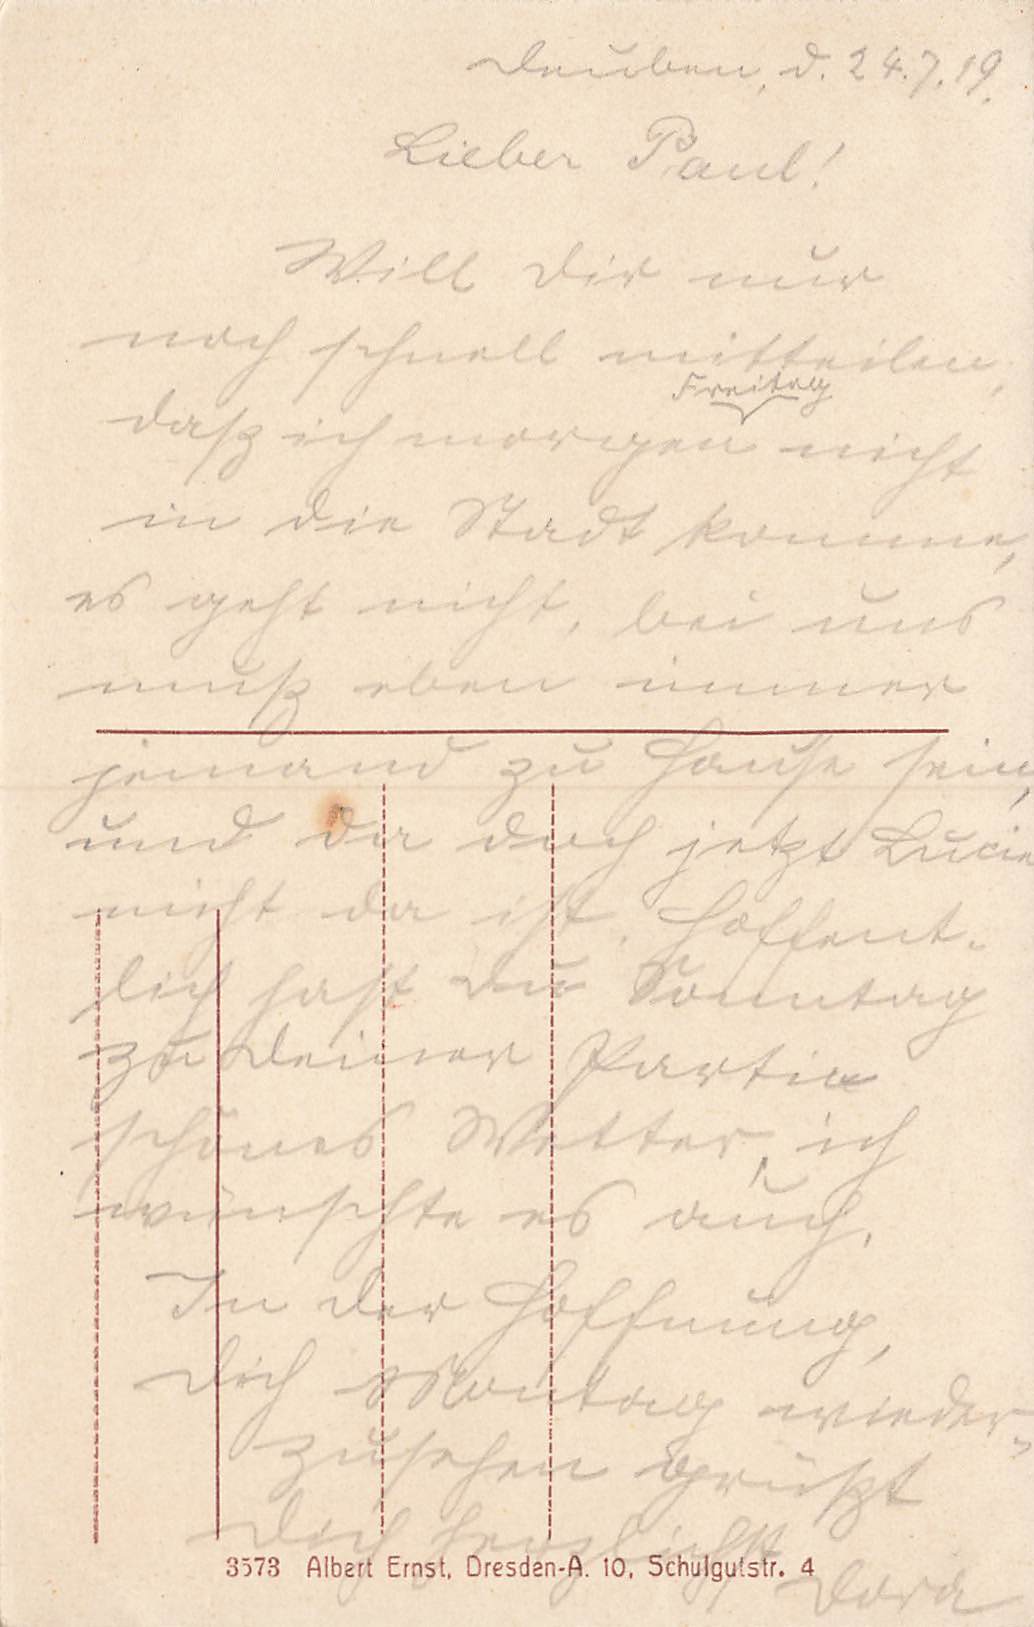 Deuben, d. 24.7.19.
Lieber Paul!
Will Dir nur
noch schnell mitteilen,
Freitag
daß ich morgen nicht
in die Stadt komme,
es geht nicht, bei uns
muß eben immer
jemand zu Hause sein,
und da doch jetzt Lucie
nicht da ist. Hoffent-
lich hast Du Sonntag
zu Deiner Partie
schönes Wetter, ich
wünschte es auch.
In der Hoffnung,
Dich Montag wieder-
zusehen grüßt
Dich herzlichst
Dora
3573 Albert Ernst, Dresden-A. 10, Schulgutstr. 4